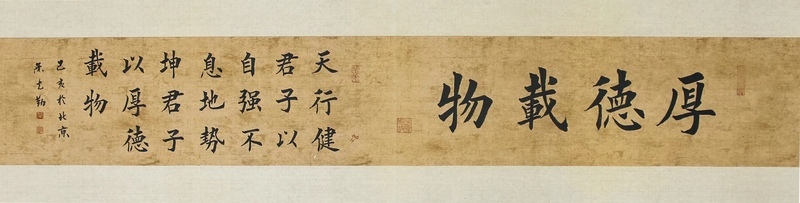 厚德載物
天行健
君子以
自强不
息地勢
坤君子
以厚德
載物
己亥於北京